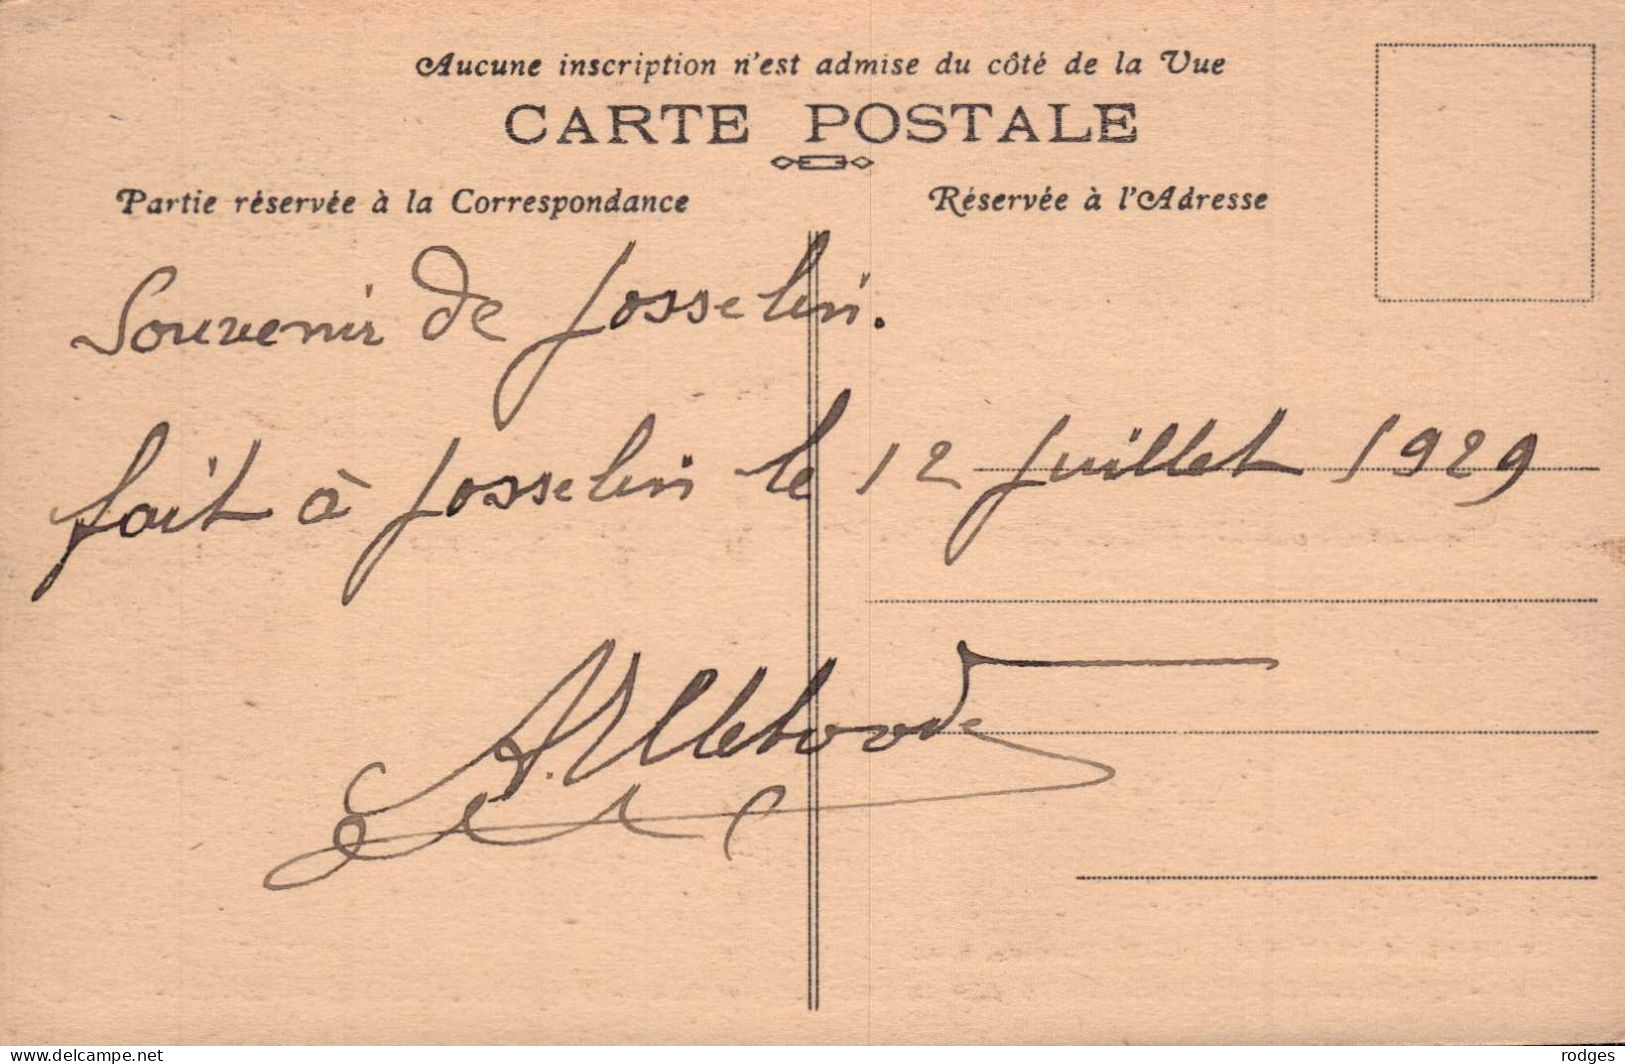 Aucune inscription n'est admise du côté de la Vue
CARTE POSTALE
Partie réservée à la Correspondance
Réservée à l'Adresse
Souvenir de Josselin.
fait à Josselin le 12 Juillet 1929
delcampe.net
rodges